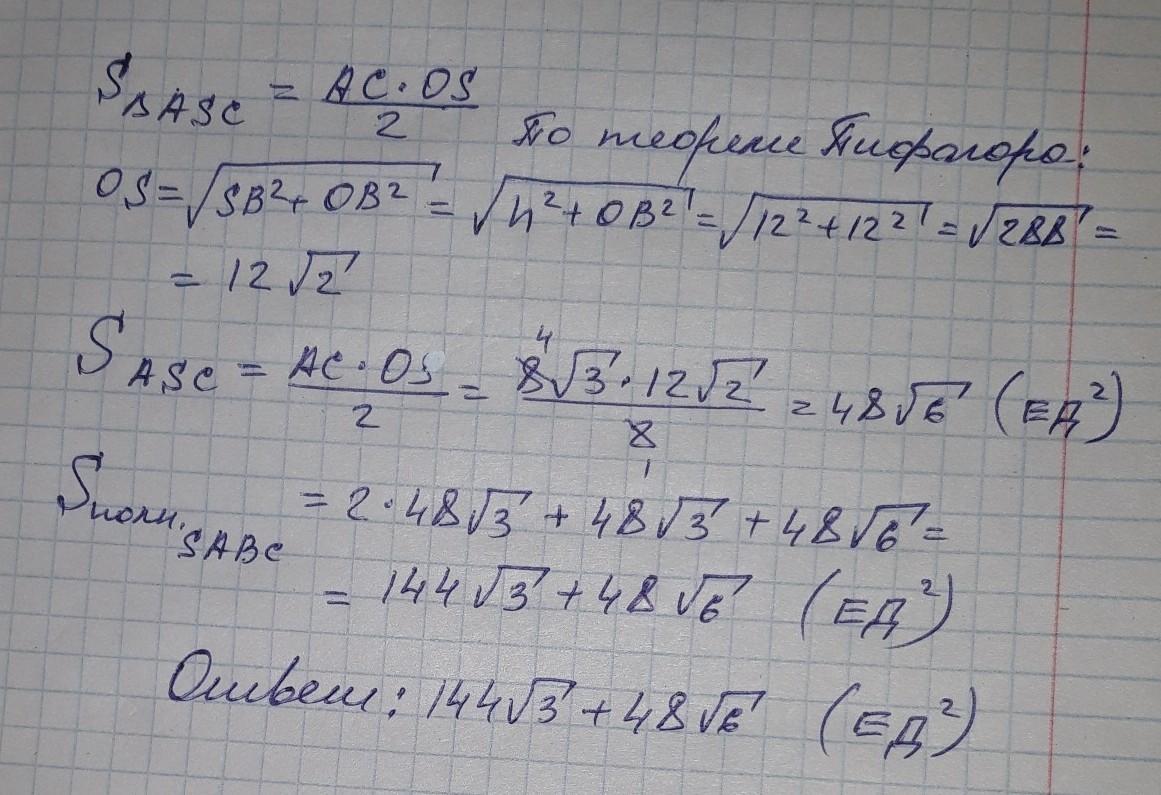 S_{ΔASC} = \frac{AC·OS}{2} По теореме Пифагора:
OS = \sqrt{SB^2 + OB^2} = \sqrt{h^2 + OB^2} = \sqrt{12^2 + 12^2} = \sqrt{288} =
= 12\sqrt{2}
S_{ASC} = \frac{AC·OS}{2} = \frac{8\sqrt{3}·12\sqrt{2}}{2} = 48\sqrt{6} (ЕД^2)
S_{полн. SABC} = 2·48\sqrt{3} + 48\sqrt{3} + 48\sqrt{6} =
= 144\sqrt{3} + 48\sqrt{6} (ЕД^2)
Ответ: 144\sqrt{3} + 48\sqrt{6} (ЕД^2)